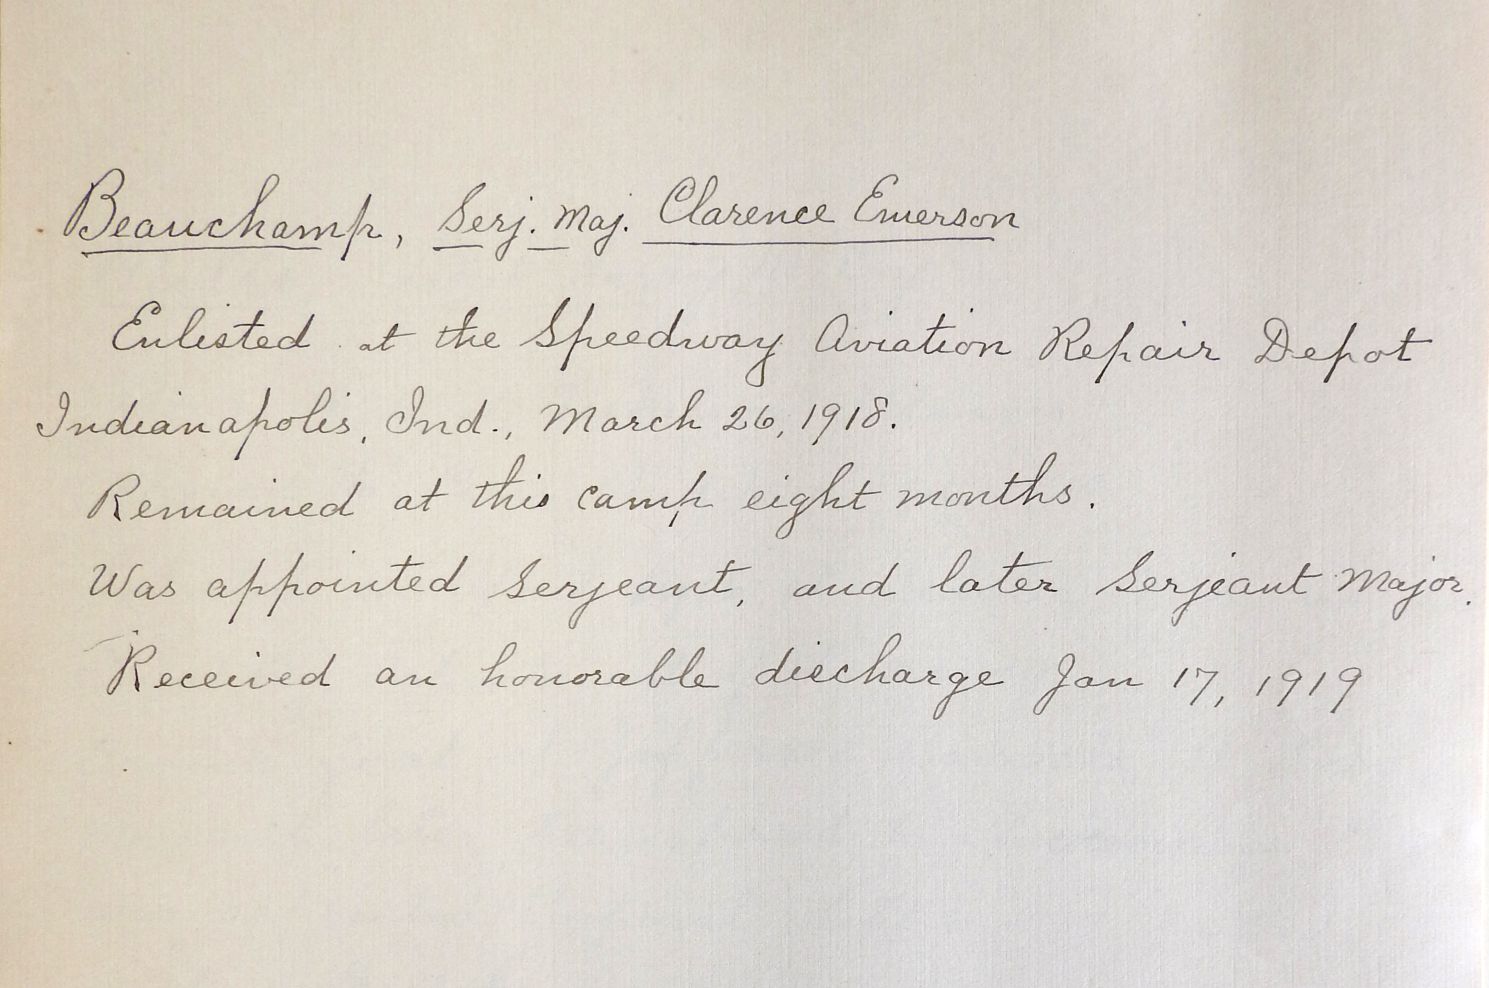 Beauchamp, Serj. Maj. Clarence Emerson
Enlisted at the Speedway Aviation Repair Depot
Indianapolis, Ind., March 26, 1918.
Remained at this camp eight months.
Was appointed Serjeant, and later Serjeant Major.
Received an honorable discharge Jan 17, 1919